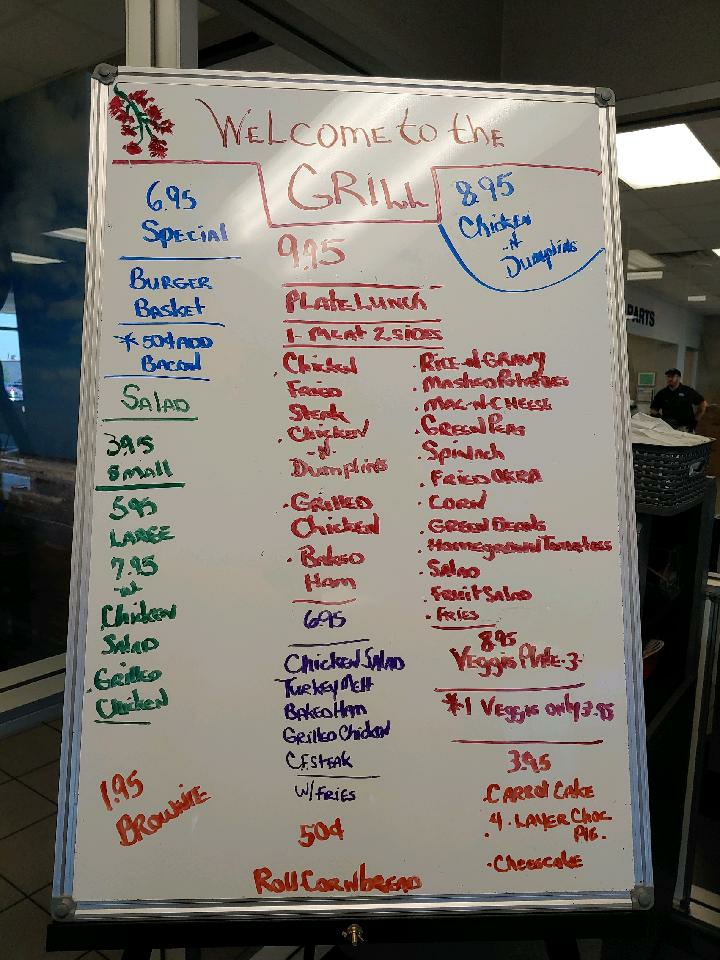 WELCOME to the
GRILL
6.95
SPECIAL
BURGER
BASKET
*50¢ ADD
BACON
SALAD
3.95
SMALL
5.95
LARGE
7.95
Chicken
SALAD
GRILLED
Chicken
1.95
BROWNIE
9.95
PLATE LUNCH
1- MEAT 2 SIDES
. Chicken
FRIED
STEAK
. Chicken
-N-
Dumplins
. GRILLED
Chicken
. BAKED
HAM
6.95
Chicken SALAD
TURKEY Melt
BAKED HAM
GRILLED Chicken
C.F. STEAK
W/ FRIES
50¢
Roll CORNBREAD
8.95
Chicken
-N-
Dumplins
. RICE-N-GRAVY
. MASHED POTATOES
. MAC-N-CHEESE
. GREEN PEAS
. Spinach
. FRIED OKRA
. CORN
. GREEN BEANS
. Homegrown Tomatoes
. SALAD
. FRUIT SALAD
. FRIES
8.95
Veggie Plate-3
*1 Veggie only 3.95
3.95
. CARROT CAKE
. 4-LAYER CHOC
PIE.
. Cheesecake
PARTS